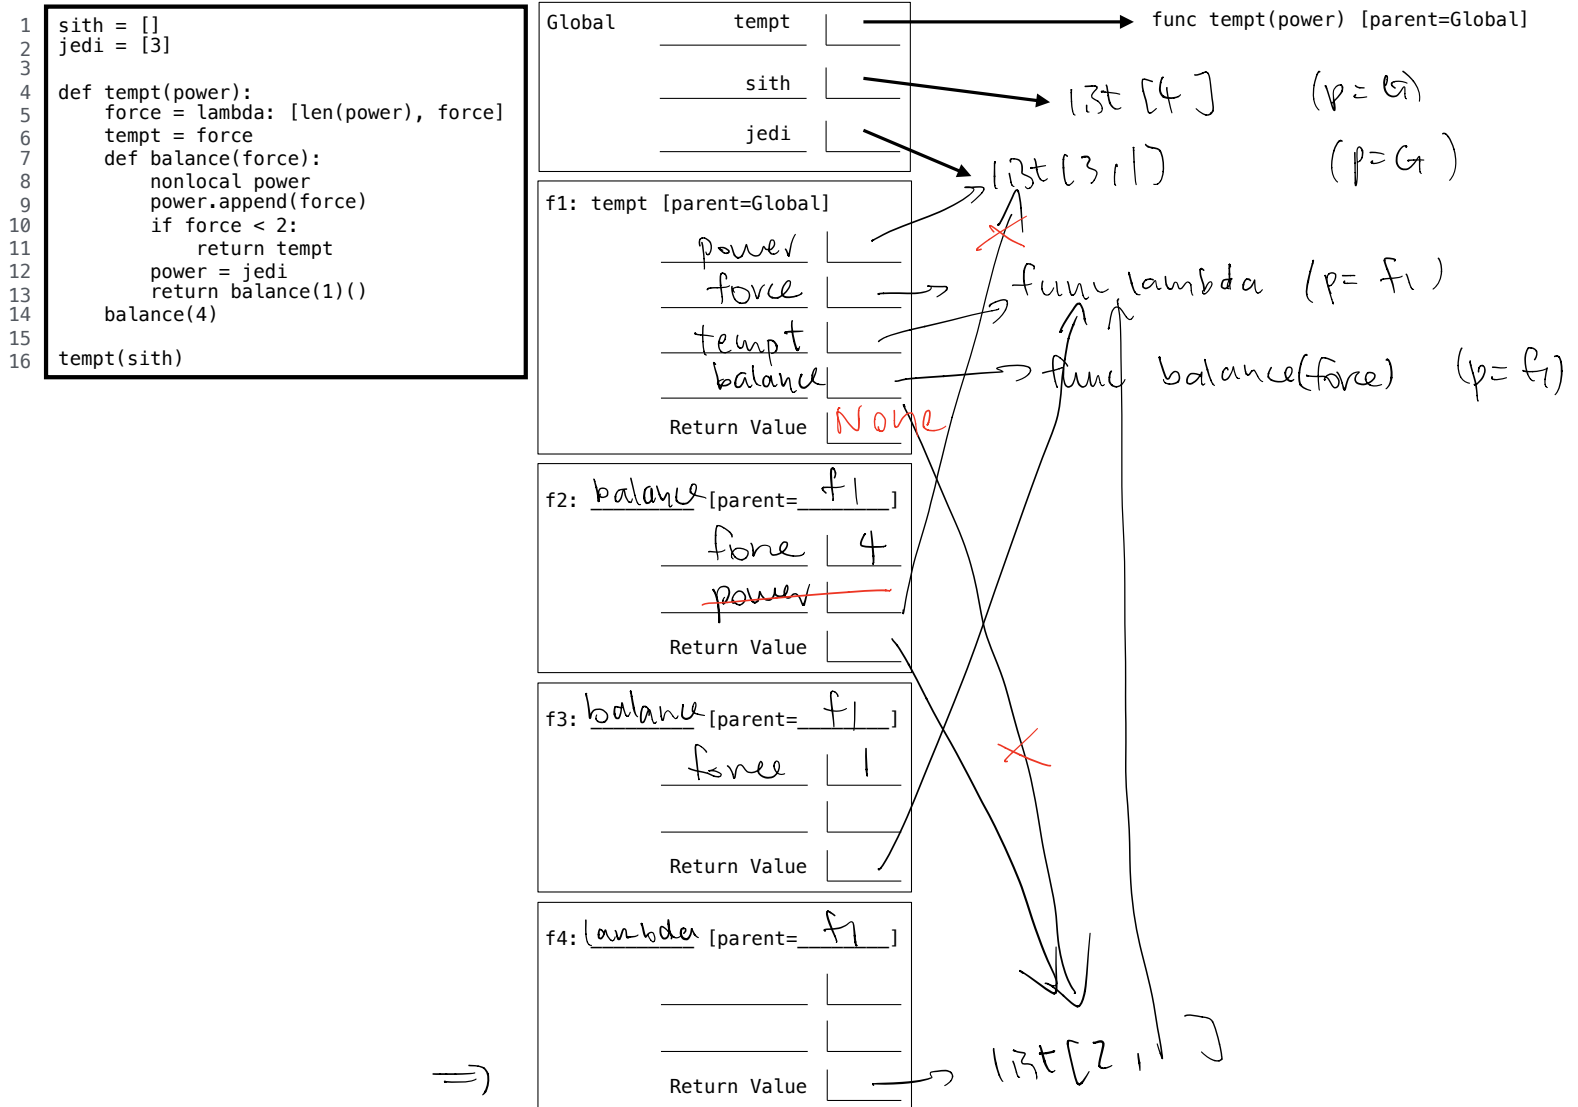 1 sith = []
2 jedi = [3]
3
4 def tempt(power):
5 force = lambda: [len(power), force]
6 tempt = force
7 def balance(force):
8 nonlocal power
9 power.append(force)
10 if force < 2:
11 return tempt
12 power = jedi
13 return balance(1)()
14 balance(4)
15
16 tempt(sith)
Global tempt func tempt(power) [parent=Global]
sith list [4] (p=G)
jedi list [3, 1] (p=G)
f1: tempt [parent=Global]
power
force func lambda (p=f1)
tempt
balance func balance(force) (p=f1)
Return Value None
f2: balance [parent=f1]
force 4
power
Return Value
f3: balance [parent=f1]
force 1
Return Value
f4: lambda [parent=f1]
Return Value list [2, ]